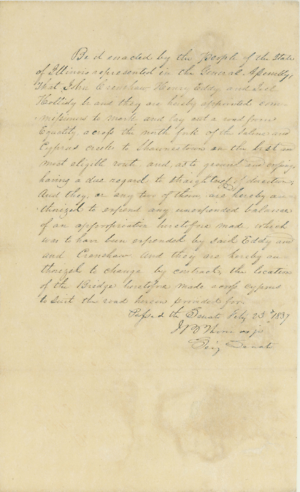 Be it enacted by the People of the State
of Illinois represented in the General Assembly,
That John Crenshaw Henry Eddy and
be and they are hereby appointed com-
missioners to mark and lay out a road from
Equality across the north fork of the Saline and
Cypress creek to Shawneetown on the best and
most eligible route and as to general
having a due regard to straightness of direction
And they or any two of them are hereby au-
thorized to expend any unexpended balance
of an appropriation heretofore made which
was to have been expended by said Eddy
and Crenshaw And they are hereby au-
thorized to change by contract the location
of the Bridge heretofore made
to suit the road herein provided for.
Passed the Senate Feby 23d 1837